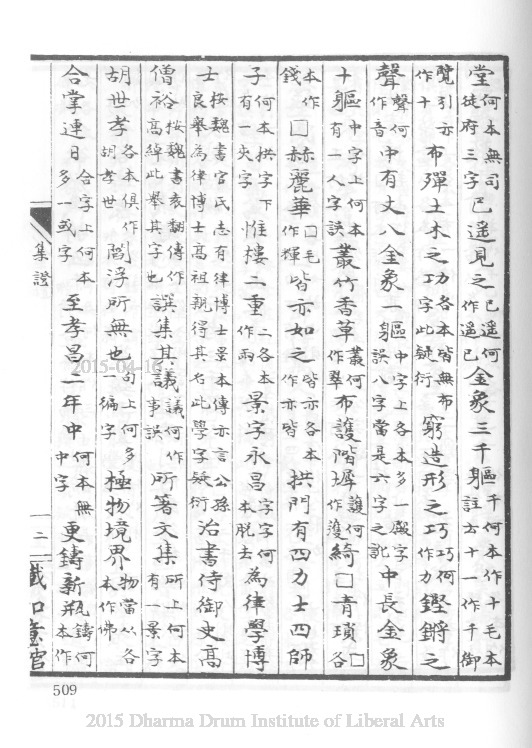 堂何本無司徒府三字已遥見之已遥何作遥已金象三千軀千何本作十毛本註云十一作千御
覽引亦作十布殫土木之功各本皆無布字此疑衍窮造形之巧巧何作力鏗鏘之
聲聲何作音中有丈八金象一軀中字上各本多一殿字誤八字當是六字之訛中長金象
十軀中字上何本有一人字誤叢竹香草叢何作翠布護階墀護何作濩綺□青瑣□各
本作錢□赫麗華□毛作煇皆亦如之皆亦各本作亦皆拱門有四力士四師
子何本拱字下有一夾字惟樓二重二各本作兩景字永昌字字何本脫去為律學博
士按魏書官氏志有律博士景本傳亦言公孫良舉為律博士高祖親得其名此學字疑衍治書侍御史高
僧裕按魏書袁翻傳作高綽此舉其字也譔集其議議何作事誤所著文集所上何本有一景字
胡世孝各本俱作胡孝世閻浮所無也句上何多一编字極物境界物當从各本作佛
合掌連日合字上何本多一或字至孝昌二年中何本無中字更鑄新瓶鑄何本作
集證
二
509
2015-04-16
2015 Dharma Drum Institute of Liberal Arts